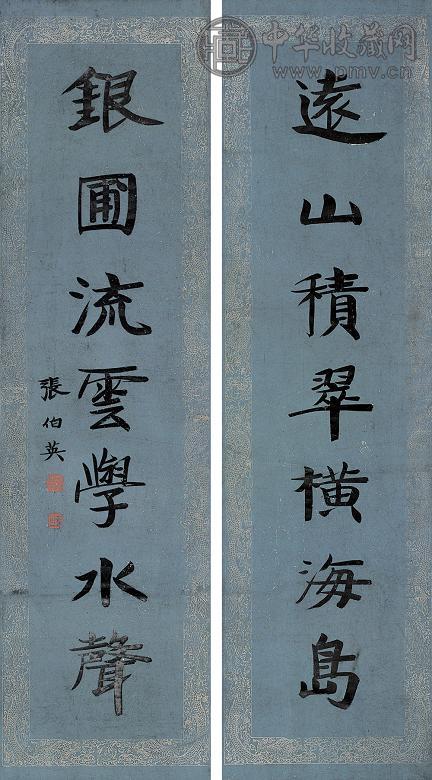 遠山積翠橫海島
銀圃流雲學水聲
張伯英
中华收藏网
www.pmv.cn